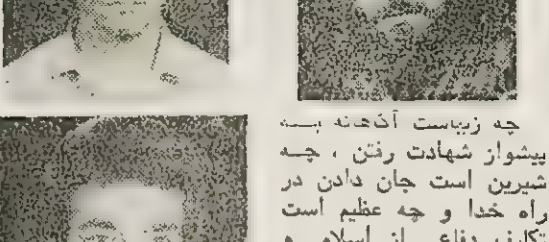 چه زیباست آذهنه بـــه
پیشواز شهادت رفتن ، چــه
شیرین است جان دادن در
راه خدا و چه عظیم است
دفاع از اسلام و